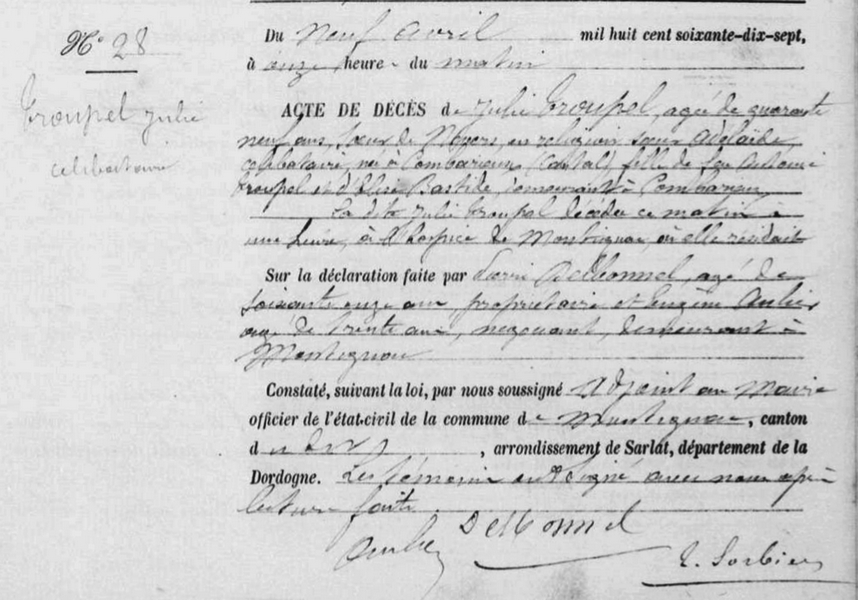 N° 28
Troupel Julie
célibataire
Du Neuf Avril mil huit cent soixante-dix-sept,
à onze heure du matin
ACTE DE DÉCÈS de Julie Troupel, agée de quarante
neuf ans, Sœur de Nevers, en religion sœur Adélaïde,
célibataire, née à (Cantal), fille de feu Antoine
Troupel et d' Bastide, demeurant à
La dite Julie Troupel décédée ce matin à
une heure, à l'hospice de Montignac, où elle résidait
Sur la déclaration faite par Delbonnel, agé de
soixante onze ans propriétaire et Eugène Aubier
agé de trente ans, négociant, demeurant à
Montignac
Constaté, suivant la loi, par nous soussigné Adjoint au Maire
officier de l'état-civil de la commune de Montignac, canton
d , arrondissement de Sarlat, département de la
Dordogne. Les témoins ont signé avec nous après
lecture faite.
Delbonnel
E. Sorbier